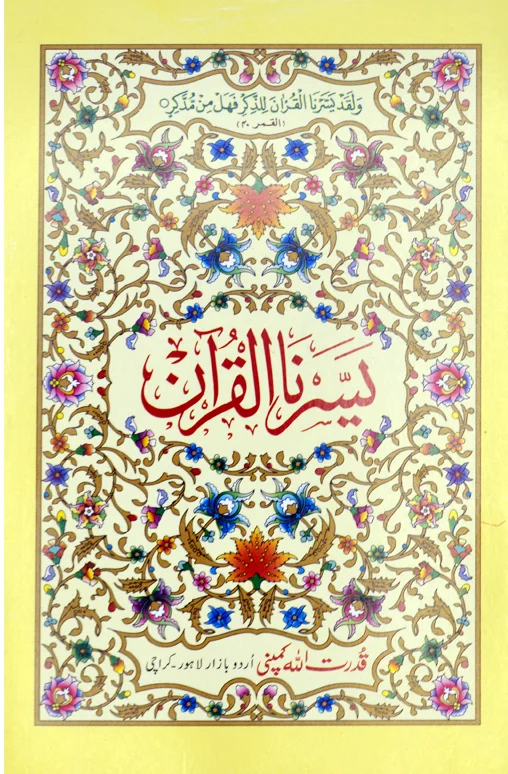 وَلَقَدْ يَسَّرْنَا الْقُرْاٰنَ لِلذِّكْرِ فَهَلْ مِنْ مُّدَّكِرٍ ○
(القمر ۴۰)
يَسَّرْنَا الْقُرْآن
قُدرت اللہ کمپنی اُردو بازار لاہور - کراچی